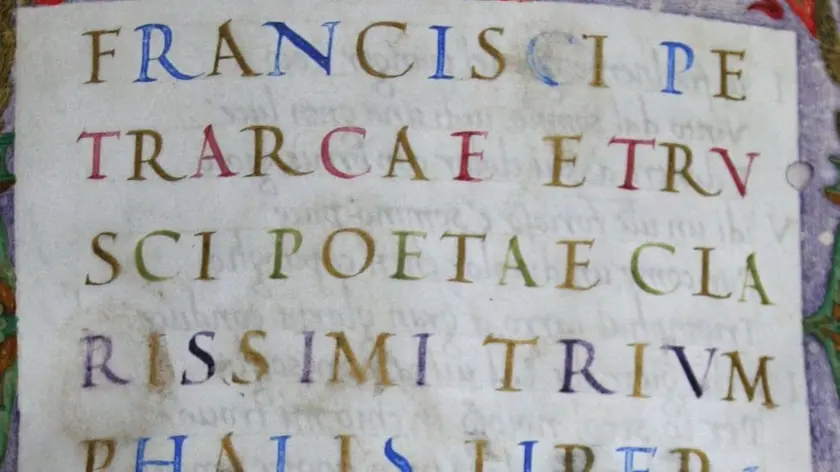 FRANCISCI PE
TRARCAE ETRV
SCI POETAE CLA
RISSIMI TRIVM
PHALIS LIBER